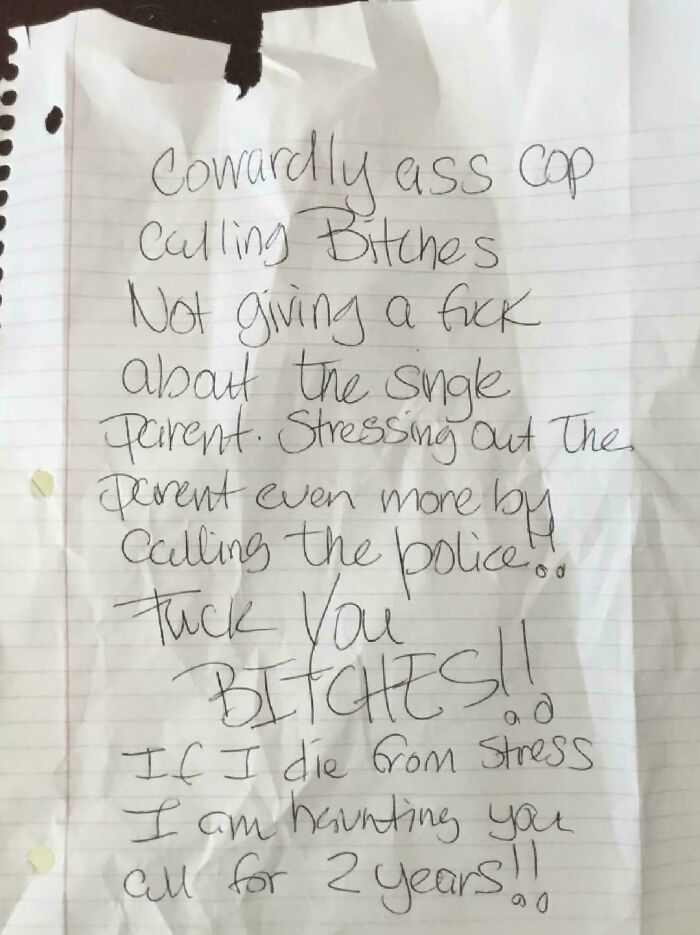 Cowardly ass cop
calling Bitches
Not giving a fuck
about the single
Parent. Stressing out The
Parent even more by
calling the police!!
Fuck You
BITCHES!!
If I die from stress
I am haunting you
all for 2 years!!